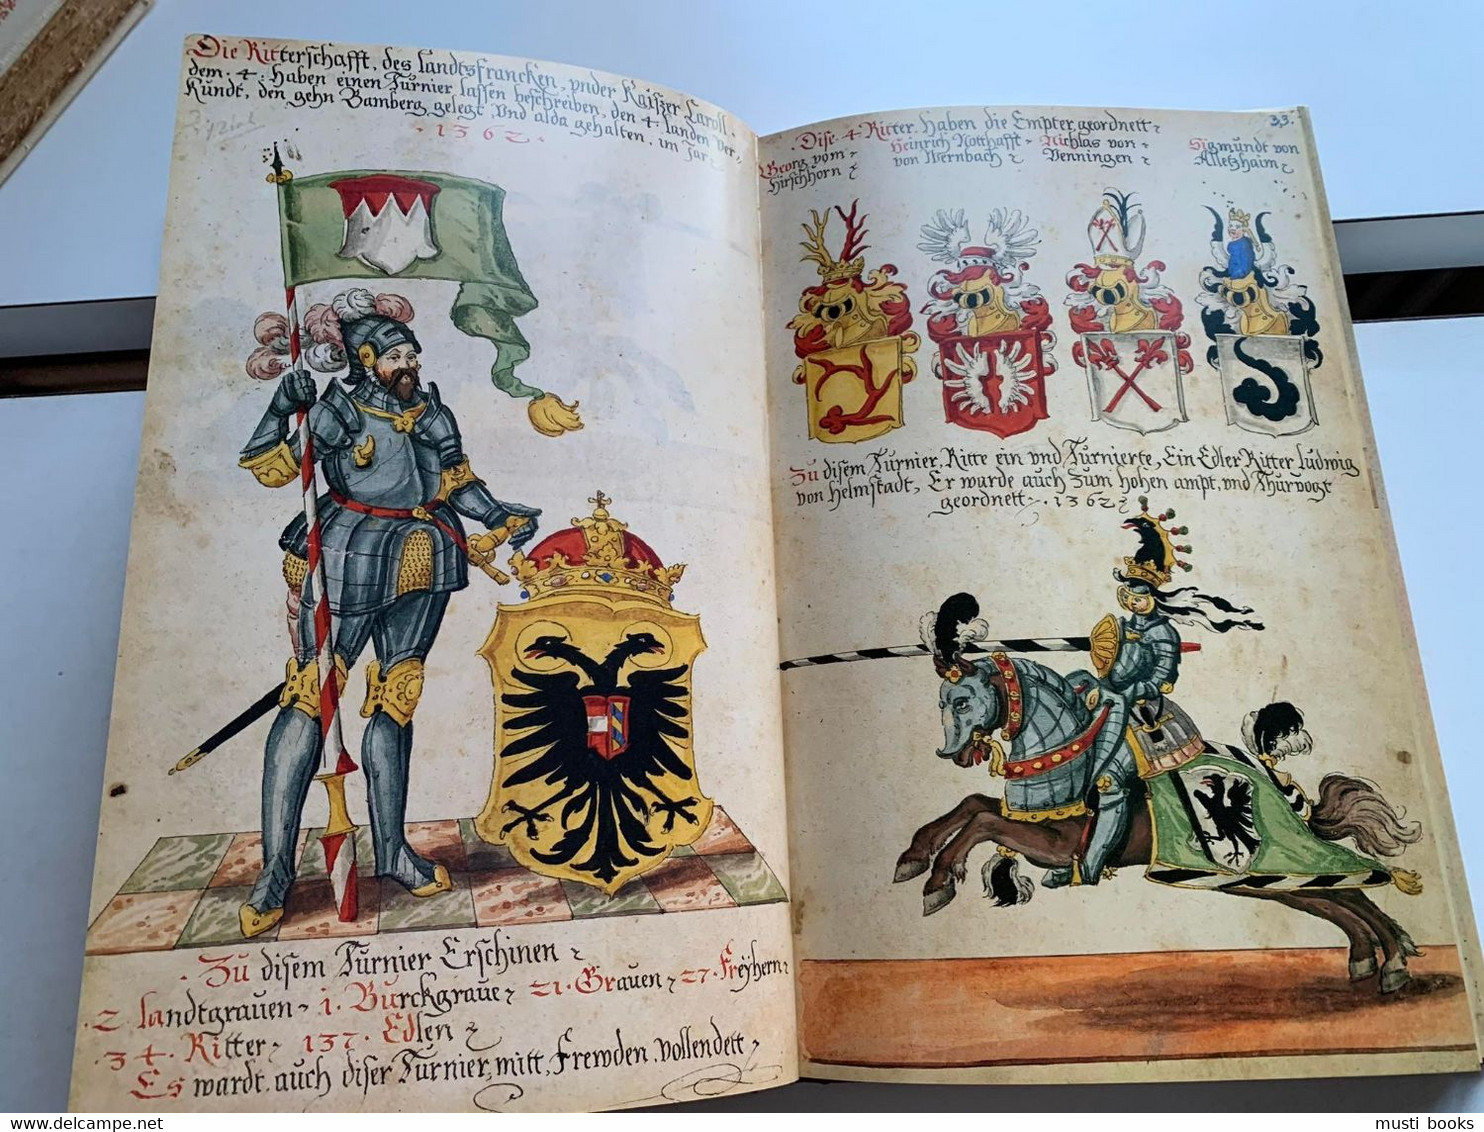 Die Ritterschafft, des Landts Francken, vnder Kaißer Caroll.
dem. 4. Haben einen Turnier lassen beschreiben, den 4. Landen ver-
Kundt, den gehn Bamberg gelegt, Vnd alda gehalten. im Jar.
. 1362 .
Zu disem Turnier Erschinen
. 2. Landtgrauen, 1. Burckgraue, 21. Grauen, 27. Freÿhern,
. 34. Ritter, 137. Edlen
Es wardt. auch diser Turnier, mitt, Frewden. vollendett,
33.
. Dise. 4. Ritter. Haben die Empter, geordnett,
Georg vom
Hirschhorn
Heinrich Notthafft
von Wernbach
Nichlas von
Venningen
Sigmundt von
Alletzhaim
Zu disem Turnier, Ritte ein vnd Turnierte, Ein Edler Ritter Ludwig
von Helmstadt, Er warde auch zum hohen ampt, vnd Thurvogt
geordnett, . 1362
musti books